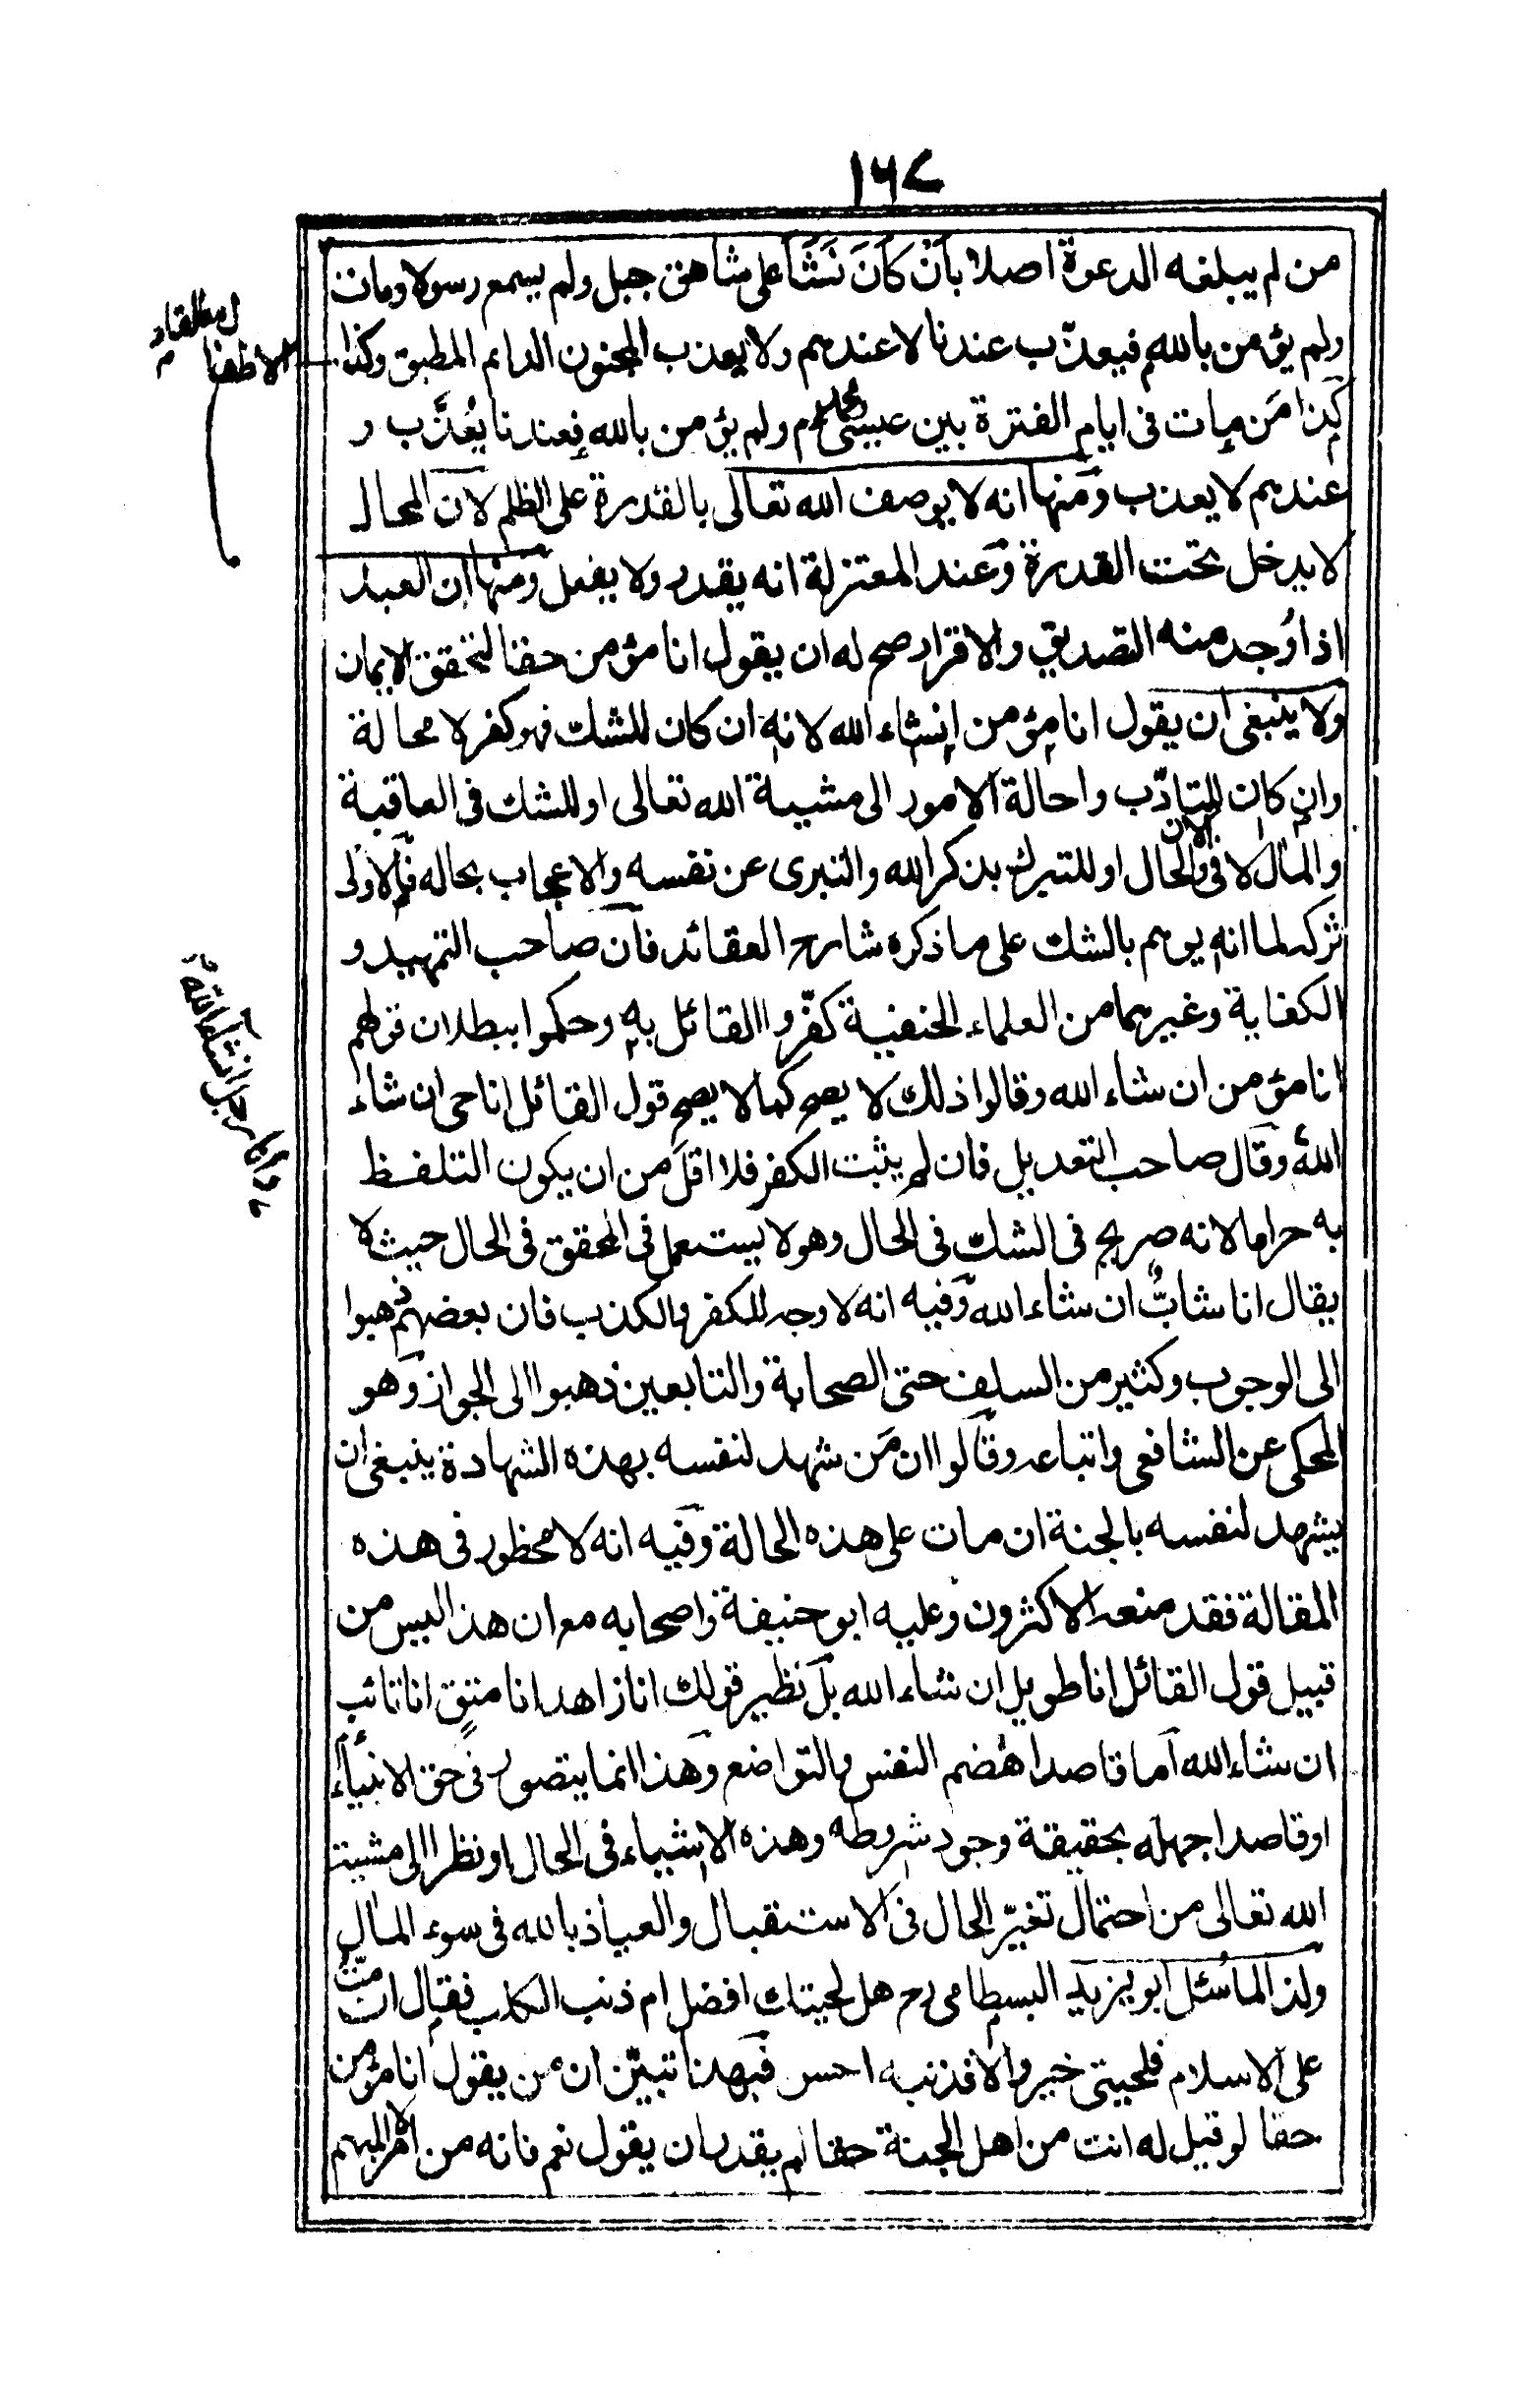 ١٦٧
من لم يبلغه الدعوة اصلا بأن كَانَ نَشَأَ على شاهق جبل ولم يسمع رسولا ومات
ولم يؤمن بالله فيعذّب عندنا لا عندهم ولا يعذب المجنون الدائم المطبق وكذا
الاطفال
كذا مَن مات فى ايام الفترة بين عيسى ومحمد م ولم يؤمن بالله فعندنا يُعَذَّب و
عندهم لا يعذب ومنها انه لا يوصف الله تعالى بالقدرة على الظلم لان المحال
لا يدخل تحت القدرة وعند المعتزلة انه يقدر ولا يفعل ومنها ان العبد
اذا وُجد منه التصديق والاقرار صح له ان يقول انا مؤمن حقا لتحقق الايمان
ولا ينبغى ان يقول انا مؤمن انشاء الله لانه ان كان للشك فهو كفر لا محالة
وان كان للتادّب واحالة الامور الى مشيبة الله تعالى او للشك فى العاقبة
والمال لا فى الان والحال او للتبرك بذكر الله والتبرى عن نفسه والاعجاب بحاله فالاولى
تركه لما انه يوهم بالشك على ما ذكره شارح العقائد فان صاحب التمهيد و
الكفاية وغيرهما من العلماء الحنفية كفّروا القائل به وحكموا ببطلان قولهم
انا مؤمن ان شاء الله وقالوا ذلك لا يصح كما لا يصح قول القائل انا حى ان شاء
اللهُ وقال صاحب التعديل فان لم يثبت الكفر فلا اقل من ان يكون التلفظ
به حراما لانه صريح فى الشك فى الحال وهو لا يستعمل فى المحقق فى الحال حيث لا
يقال انا شابٌّ ان شاء الله وفيه انه لا وجه للكفر والكذب فان بعضهم ذهبوا
الى الوجوب وكثير من السلف حتى الصحابة والتابعين ذهبوا الى الجواز وهو
المحكى عن الشافعى واتباعه وقالوا ان مَن شهد لنفسه بهذه الشهادة ينبغى ان
يشهد لنفسه بالجنة ان مات على هذه الحالة وفيه انه لا محظور فى هذه
المقالة فقد منعه الاكثرون وعليه ابو حنيفة واصحابه مع ان هذا ليس من
قبيل قول القائل انا طويل ان شاء الله بل نظير قولك انا زاهد انا متقٍ انا تائب
ان شاء الله اما قاصدا هضم النفس والتواضع وهذا انما يتصور فى حق الانبياء
او قاصدا جهله بحقيقة وجود شروطه وهذه الاشياء فى الحال او نظرا الى مشيت
الله تعالى من احتمال تغيّر الحال فى الاستقبال والعياذ بالله فى سوء المال
ولذا لما سُئل ابو يزيد البسطامى رح هل لحيتك افضل ام ذنب الكلب فقال ان متُّ
على الاسلام فلحيتى خير والا فذنبه احسن فبهذا تبيّن ان من يقول انا مؤمن
حقا لو قيل له انت من اهل الجنة حقا لم يقدر ان يقول نعم فانه من الامر المبهم